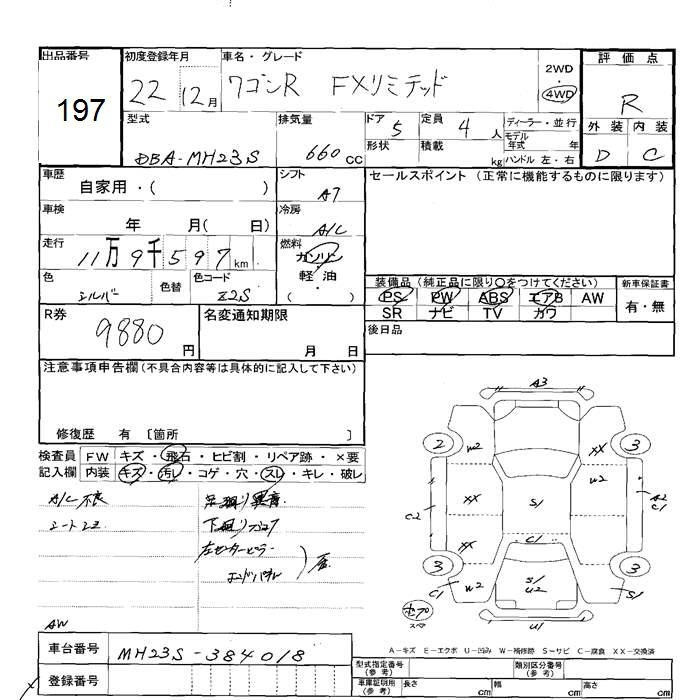 出品番号
197
初度登録年月
22 12月
車名・グレード
ワゴンR FXリミテッド
2WD
・
4WD
評価点
R
外装 内装
D C
型式
DBA-MH23S
排気量
660 CC
ドア 5
形状
定員 4 人
積載 kg
ディーラー・並行
モデル
年式 年
ハンドル 左・右
車歴
自家用・( )
シフト
A7
セールスポイント(正常に機能するものに限ります)
車検
年 月( 日)
冷房
A/C
走行
11万9千597km
燃料
ガソリン
軽・油
( )
色
シルバー
色替
色コード
Z2S
装備品(純正品に限り〇をつけてください)
PS PW ABS エアB AW
SR ナビ TV カワ
新車保証書
有・無
R券
9880円
名変通知期限
月 日
後日品
注意事項申告欄(不具合内容等は具体的に記入して下さい)
修復歴 有 〔箇所 〕
検査員
記入欄
FW キズ・飛石・ヒビ割・リペア跡・×要
内装 キズ・汚レ・コゲ・穴・スレ・キレ・破レ
A/C不良
下廻りサビ
左センターピラー
エンドパネル
AW
A3
2 W2 XX 3
W2
XX S1 A2
C2 C1
XX C1
3 3
C1 W2 S1 S1
U2
U1
スペア
A-キズ E-エクボ U-凹み W-補修跡 S-サビ C-腐食 XX-交換済
車台番号
MH23S-384018
登録番号
型式指定番号
(参考)
類別区分番号
(参考)
車庫証明用
(参考)
長さ cm
幅 cm
高さ cm